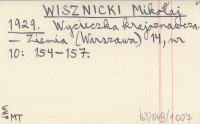 WISZNICKI Mikołaj
1929. Wycieczka krajoznawcza.
— Ziemia (Warszawa) 14, nr
10: 154–157.
MT